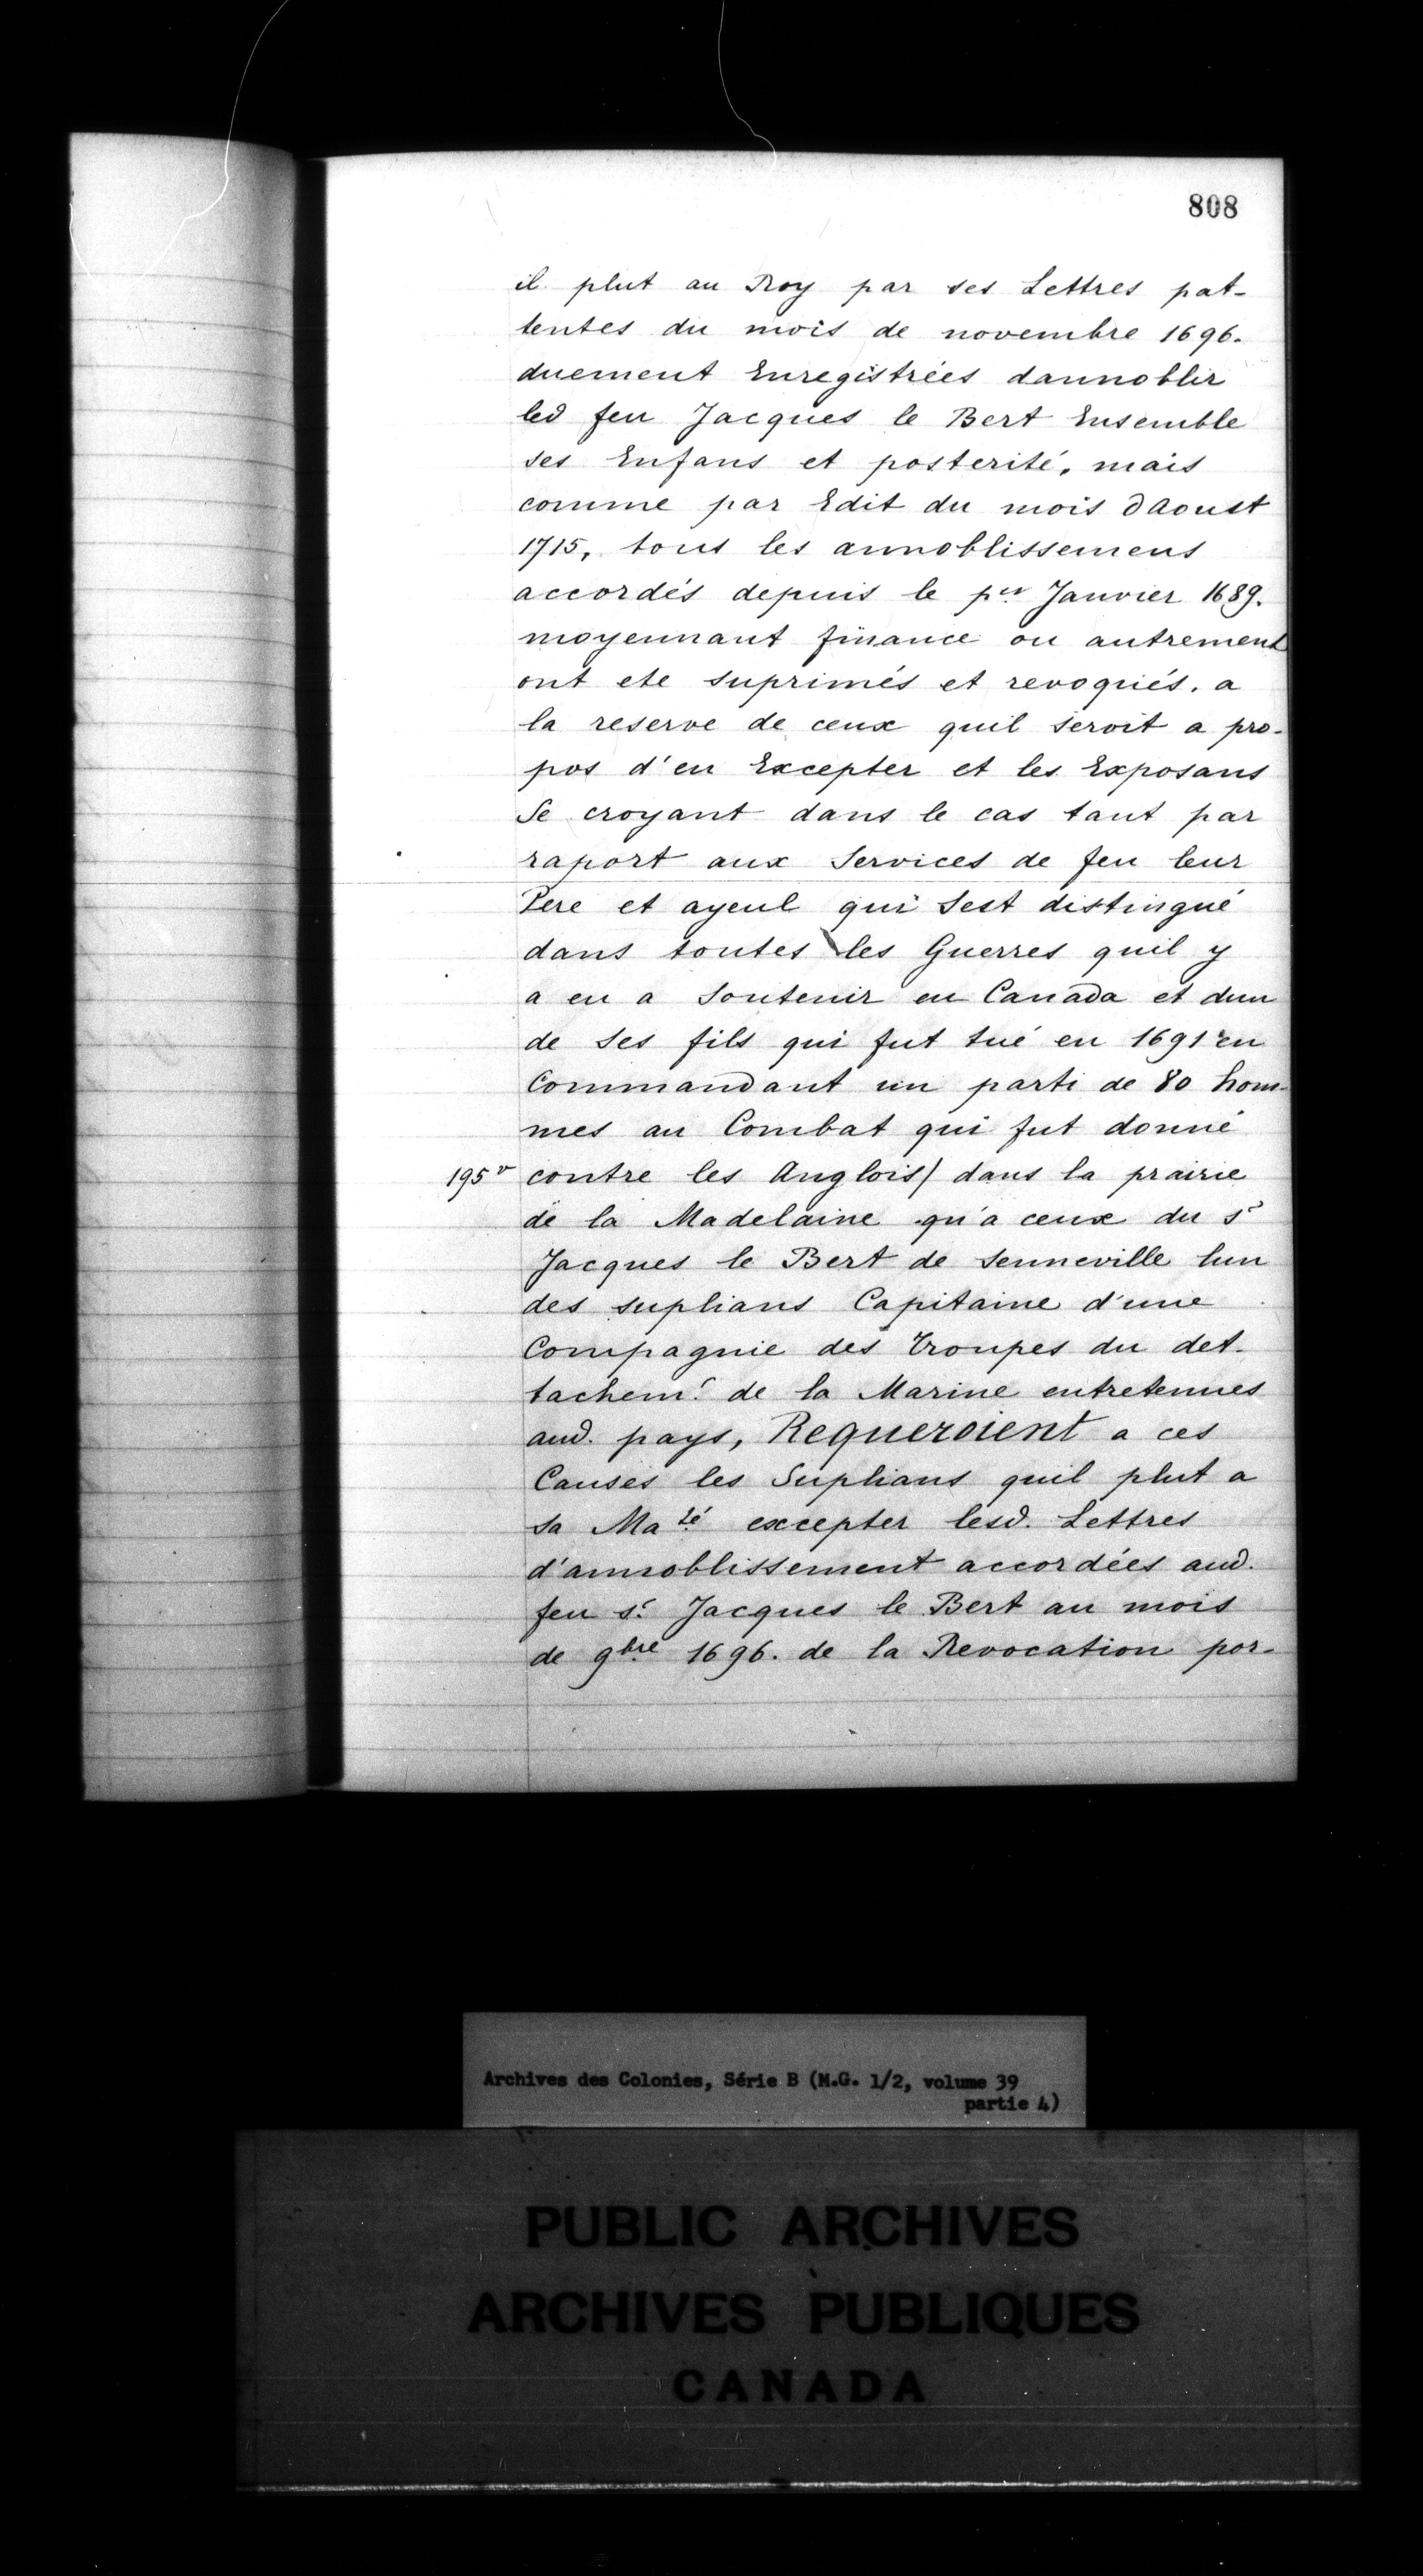 808
il plut au Roy par ses Lettres pat-
tentes du mois de novembre 1696.
duement Enregistrées dannoblir
led feu Jacques le Bert Ensemble
ses Enfans et posterité, mais
comme par Edit du mois dAoust
1715, tous les annoblissemens
accordés depuis le per Janvier 1689.
moyennant finance ou autrement
ont ete suprimés et revoqués. a
la reserve de ceux quil seroit a pro-
pos d'en Excepter et les Exposans
Se croyant dans le cas tant par
raport aux Services de feu leur
Pere et ayeul qui Sest distingué
dans toutes les Guerres quil y
a eu a Soutenir en Canada et dun
de Ses fils qui fut tué en 1691 en
Commandant un parti de 80 hom-
mes au Combat qui fut donné
195v contre les Anglois/ dans la prairie
de la Madelaine qu'a ceux du Sr
Jacques le Bert de Senneville lun
des suplians Capitaine d'une
Compagnie des Troupes du det-
tachemt. de la Marine entretenues
aud. pays, Requeroient a ces
Causes les Suplians quil plut a
Sa Maté excepter lesd. Lettres
d'annoblissement accordées aud.
feu Sr. Jacques le Bert au mois
de 9bre 1696. de la Revocation por-
Archives des Colonies, Série B (M.G. 1/2, volume 39
partie 4)
PUBLIC ARCHIVES
ARCHIVES PUBLIQUES
CANADA